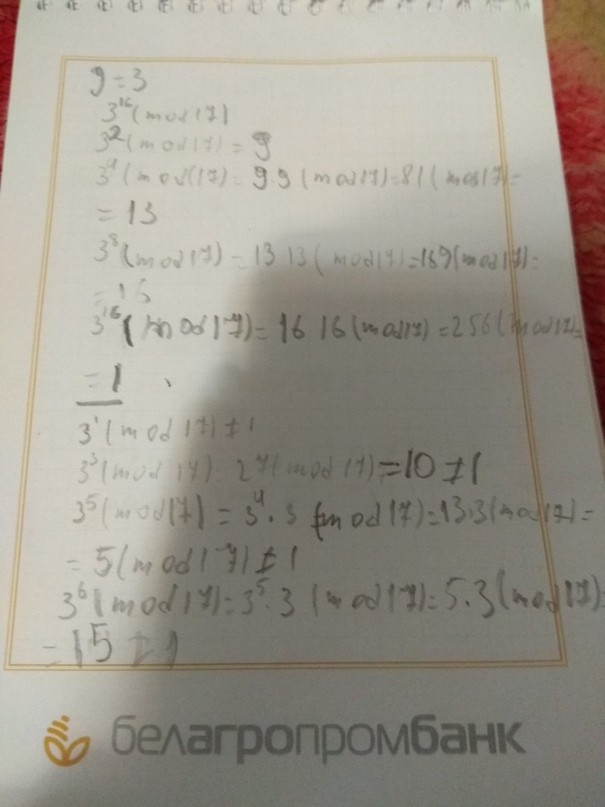 g = 3
3^16 (mod 17)
3^2 (mod 17) = 9
3^4 (mod (17) = 9·9 (mod 17) = 81 (mod 17) =
= 13
3^8 (mod 17) = 13 13 (mod 17) = 169 (mod 17) =
= 16
3^16 (mod 17) = 16 16 (mod 17) = 256 (mod 17) =
= 1
3^1 (mod 17) ≠ 1
3^3 (mod 17) = 27 (mod 17) = 10 ≠ 1
3^5 (mod 17) = 3^4 · 3 (mod 17) = 13·3 (mod 17) =
= 5 (mod 17) ≠ 1
3^6 (mod 17) = 3^5 · 3 (mod 17) = 5·3 (mod 17) =
= 15 ≠ 1
белагропромбанк